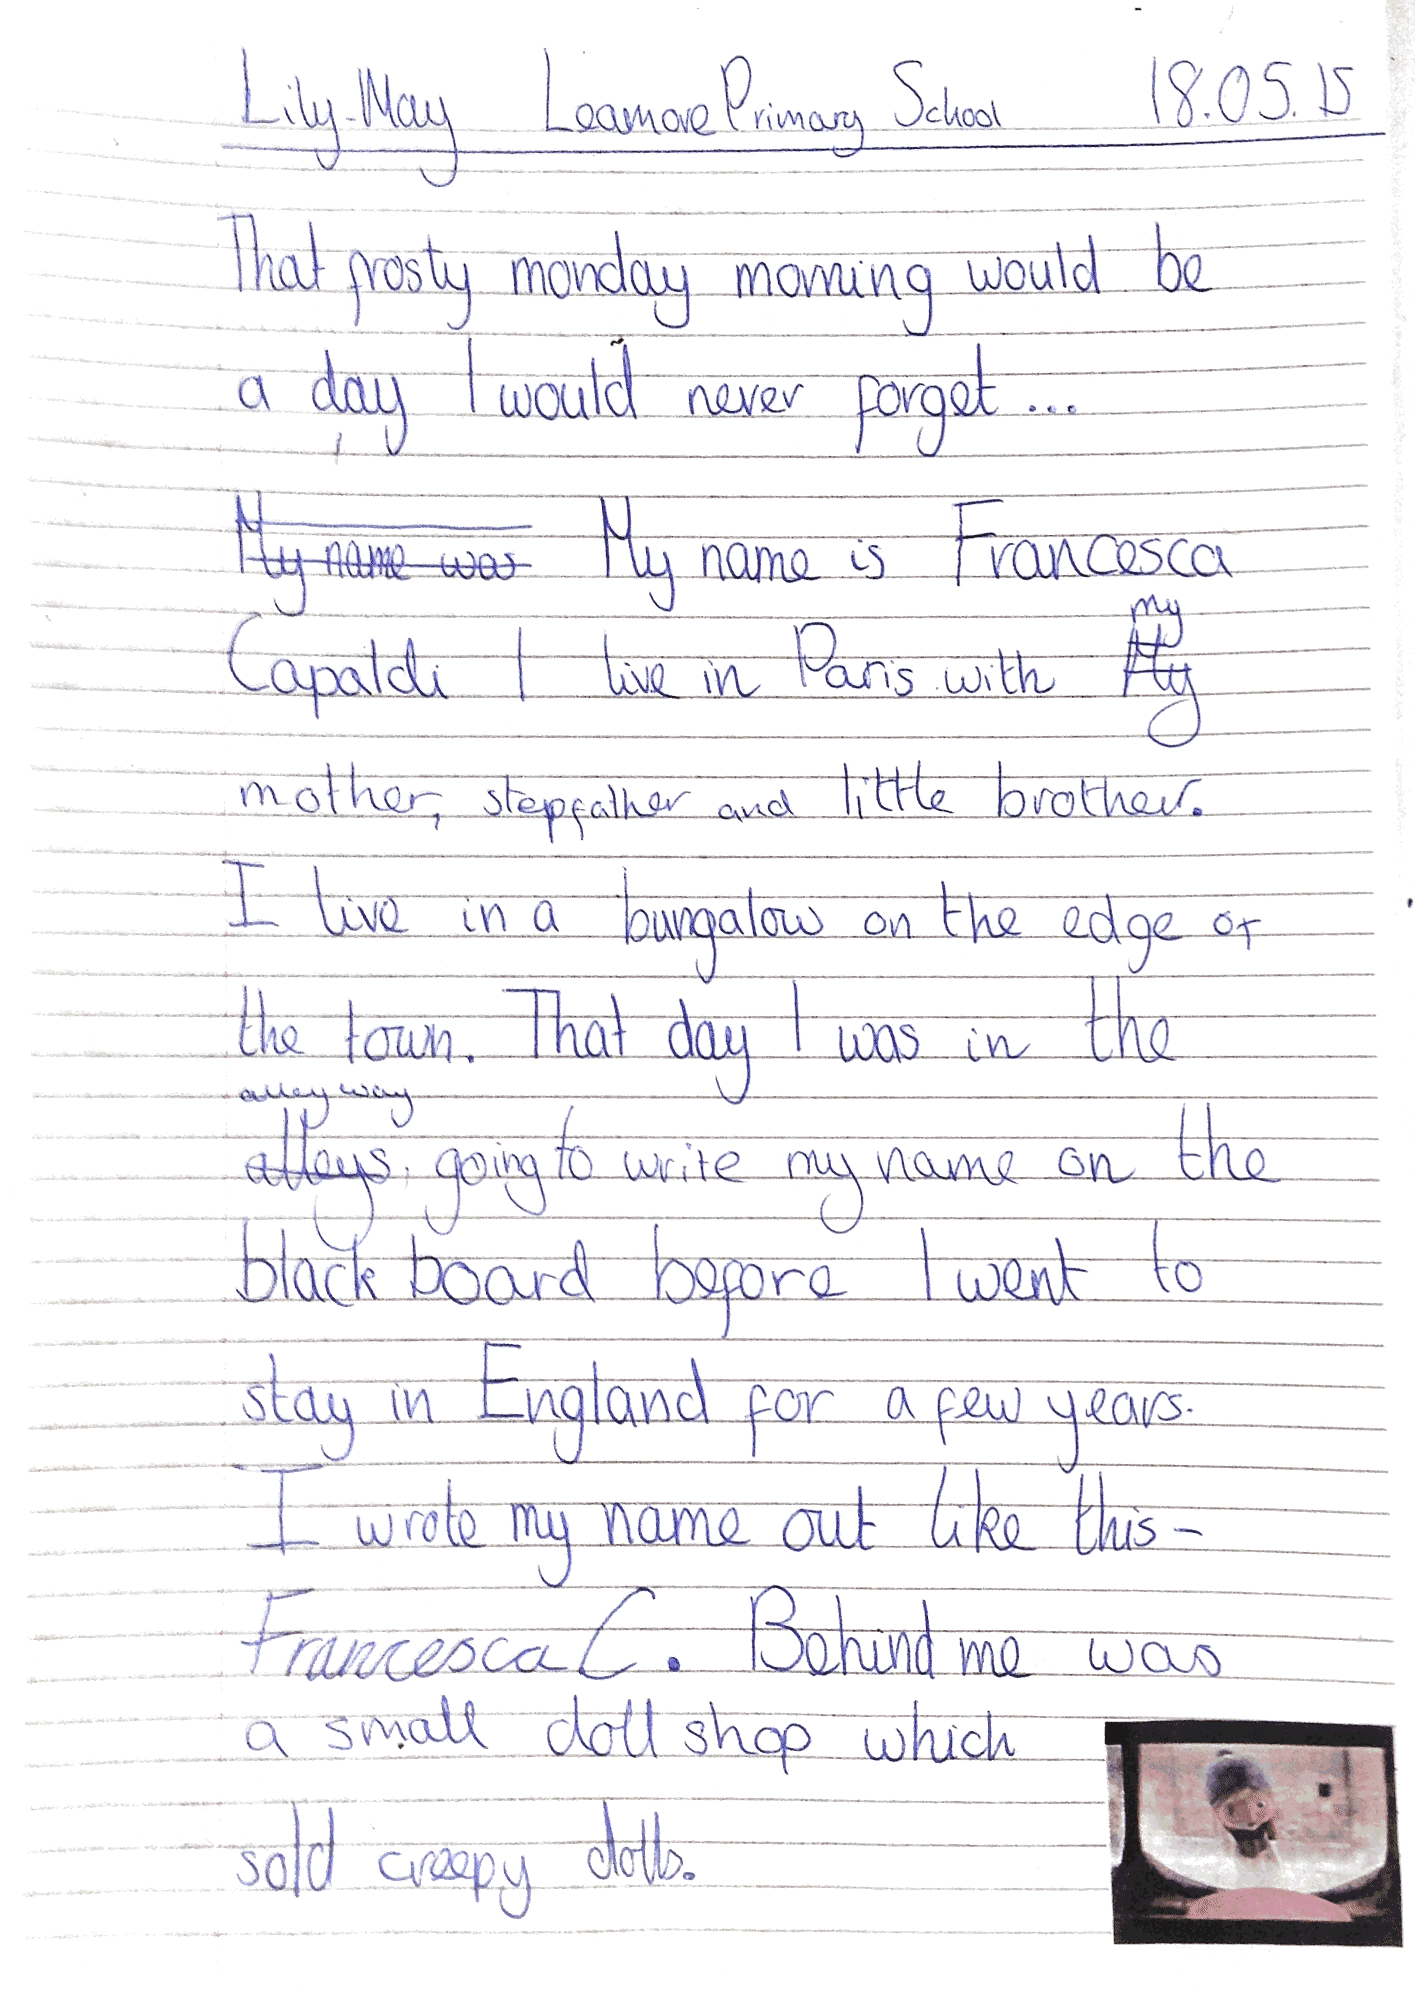 Lily-May Leamore Primary School 18.05.15
That frosty monday morning would be
a day I would never forget...
~~My name was~~ My name is Francesca
my
Capaldi I live in Paris with ~~My~~
mother, stepfather and little brother.
I live in a bungalow on the edge of
the town. That day I was in the
alleyway
~~alleys~~, going to write my name on the
black board before I went to
stay in England for a few years.
I wrote my name out like this-
Francesca C. Behind me was
a small doll shop which
sold creepy dolls.